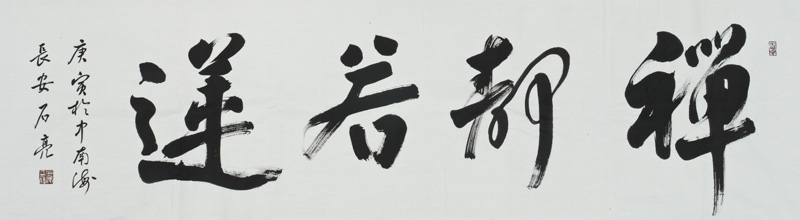 禪靜若蓮
庚寅於中南海
長安石亮